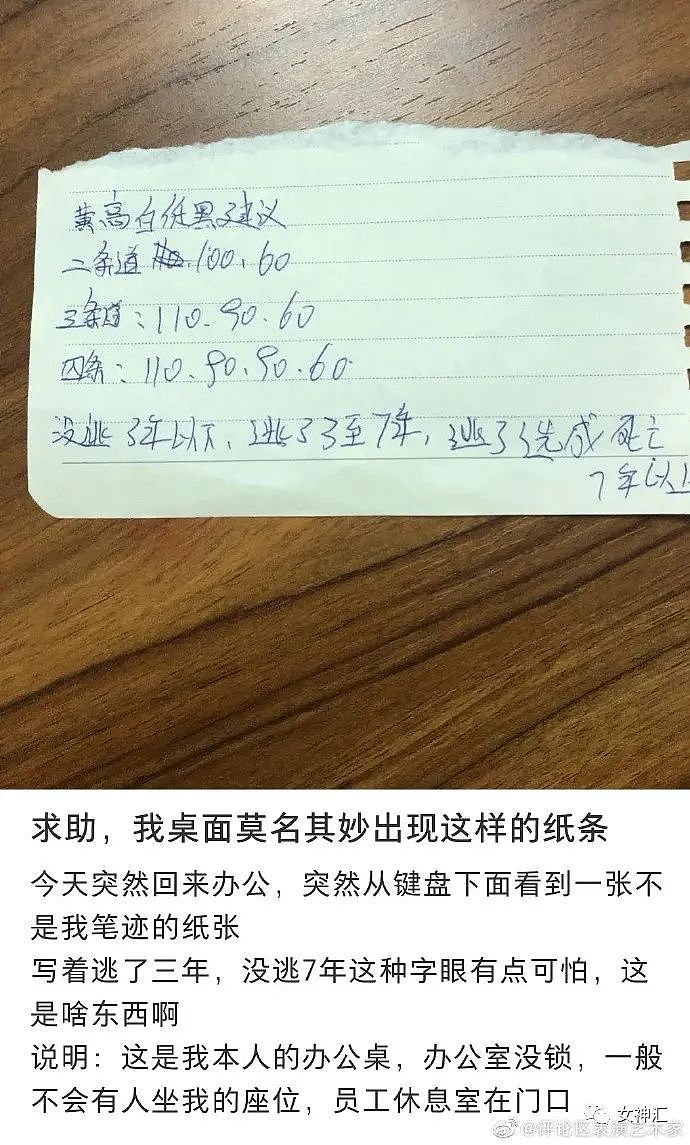 黄高白低黑了建议
二条道 100、60
三条道:110、90、60
四条:110、90、90、60
没逃3年以下、逃了3至7年,逃了造成死亡
7年以上
求助,我桌面莫名其妙出现这样的纸条
今天突然回来办公,突然从键盘下面看到一张不
是我笔迹的纸张
写着逃了三年,没逃7年这种字眼有点可怕,这
是啥东西啊
说明:这是我本人的办公桌,办公室没锁,一般
不会有人坐我的座位,员工休息室在门口
女神汇
@评论区表演艺术家